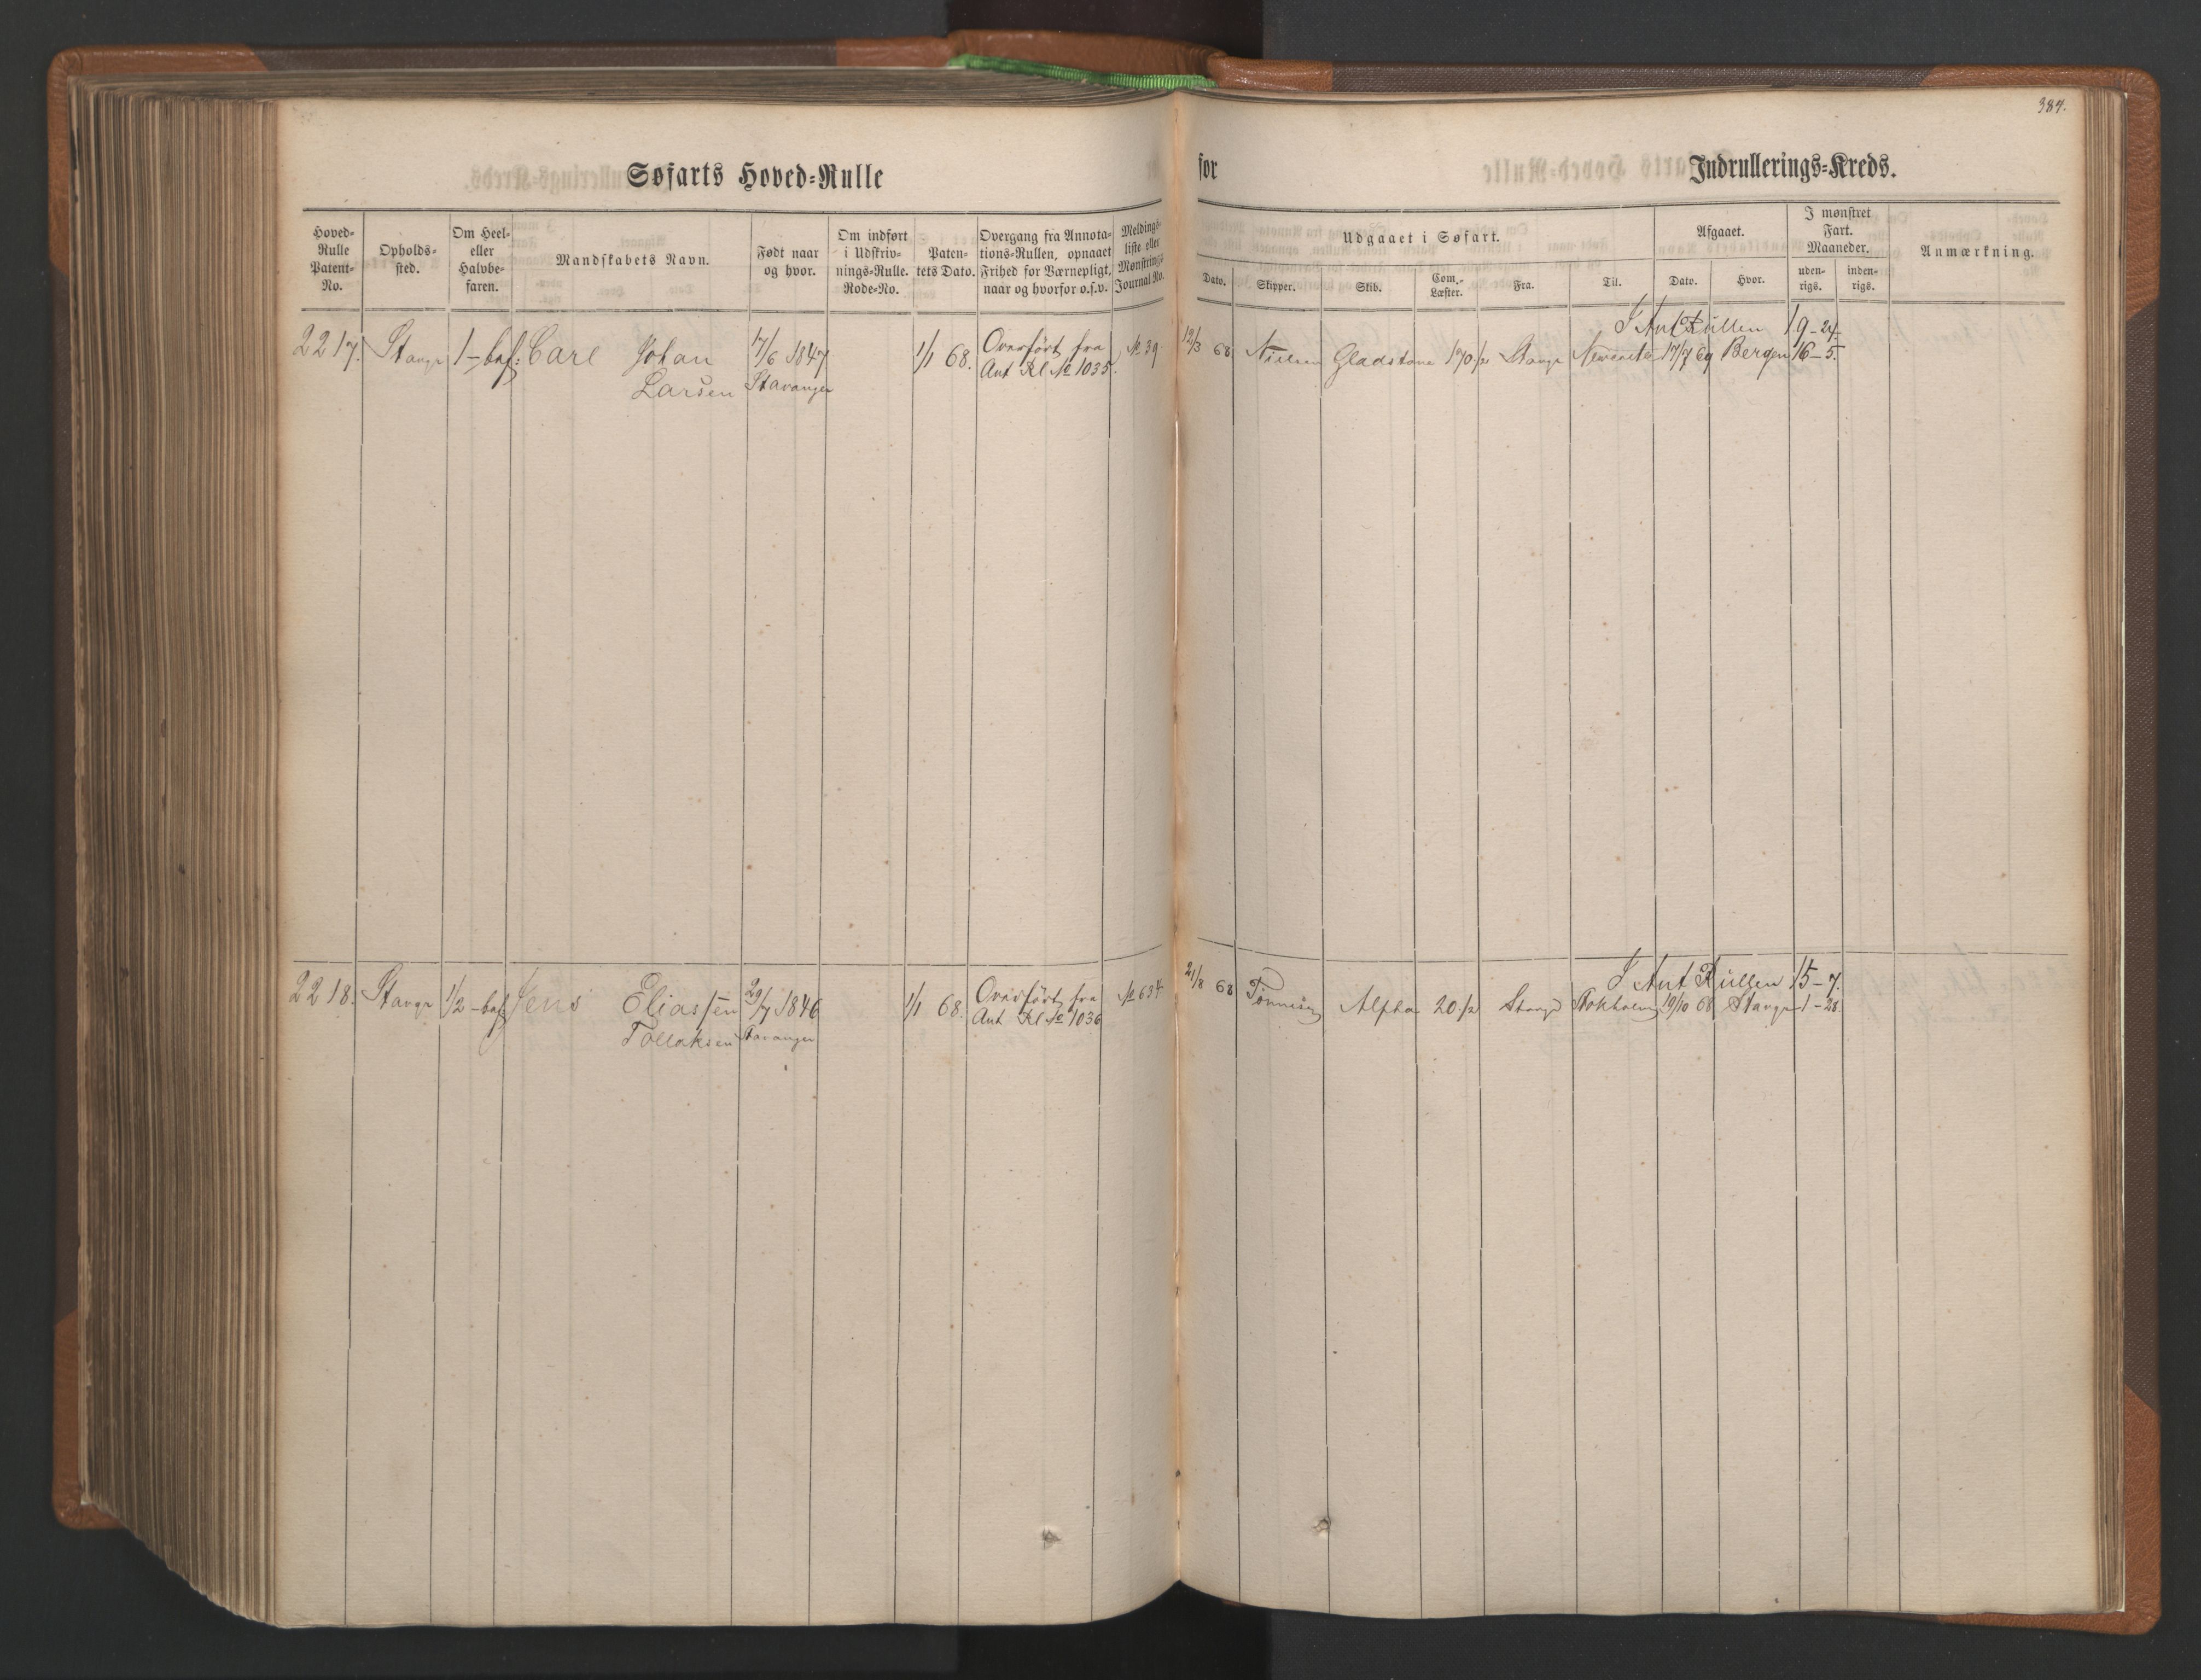 384.
Søfarts Hoved=Rulle for Indrullerings=Kreds.
Hoved=Rulle Patent=No.
Opholds=sted.
Om Heel= eller Halvbe=faren.
Mandskabets Navn.
Født naar og hvor.
Om indført i Udskriv=nings=Rulle. Rode=No.
Paten=tets Dato.
Overgang fra Annota=tions=Rullen, opnaaet Frihed for Værnepligt, naar og hvorfor o.s.v.
Meldings=liste eller Mønstrings Journal No.
Udgaaet i Søfart.
Dato.
Skipper.
Skib.
Com.=Læster.
Fra.
Til.
Afgaaet.
Dato.
Hvor.
I mønstret Fart. Maaneder.
uden=rigs.
inden=rigs.
Anmærkning.
I Ant Rullen 19-24.
2217. Stavgr 1-bef: Carl Johan 17/6 1847 1/1 68. Overført fra No 39 12/3 68 Nielsen Gladstone 170 /2 Stavgr 17/7 69 Bergen 16-5.
Larsen Stavanger Ant Rl No 1035.
I Ant Rullen 15-7.
2218. Stavgr 1/2-bef Jens Eliassen 29/7 1846 1/1 68. Overført fra No 634 21/8 68 Alpha 20 /2 Stavgr Stokholm 19/10 68 Stavgr 1-28.
Tollaksen Stavanger Ant Rl No 1036